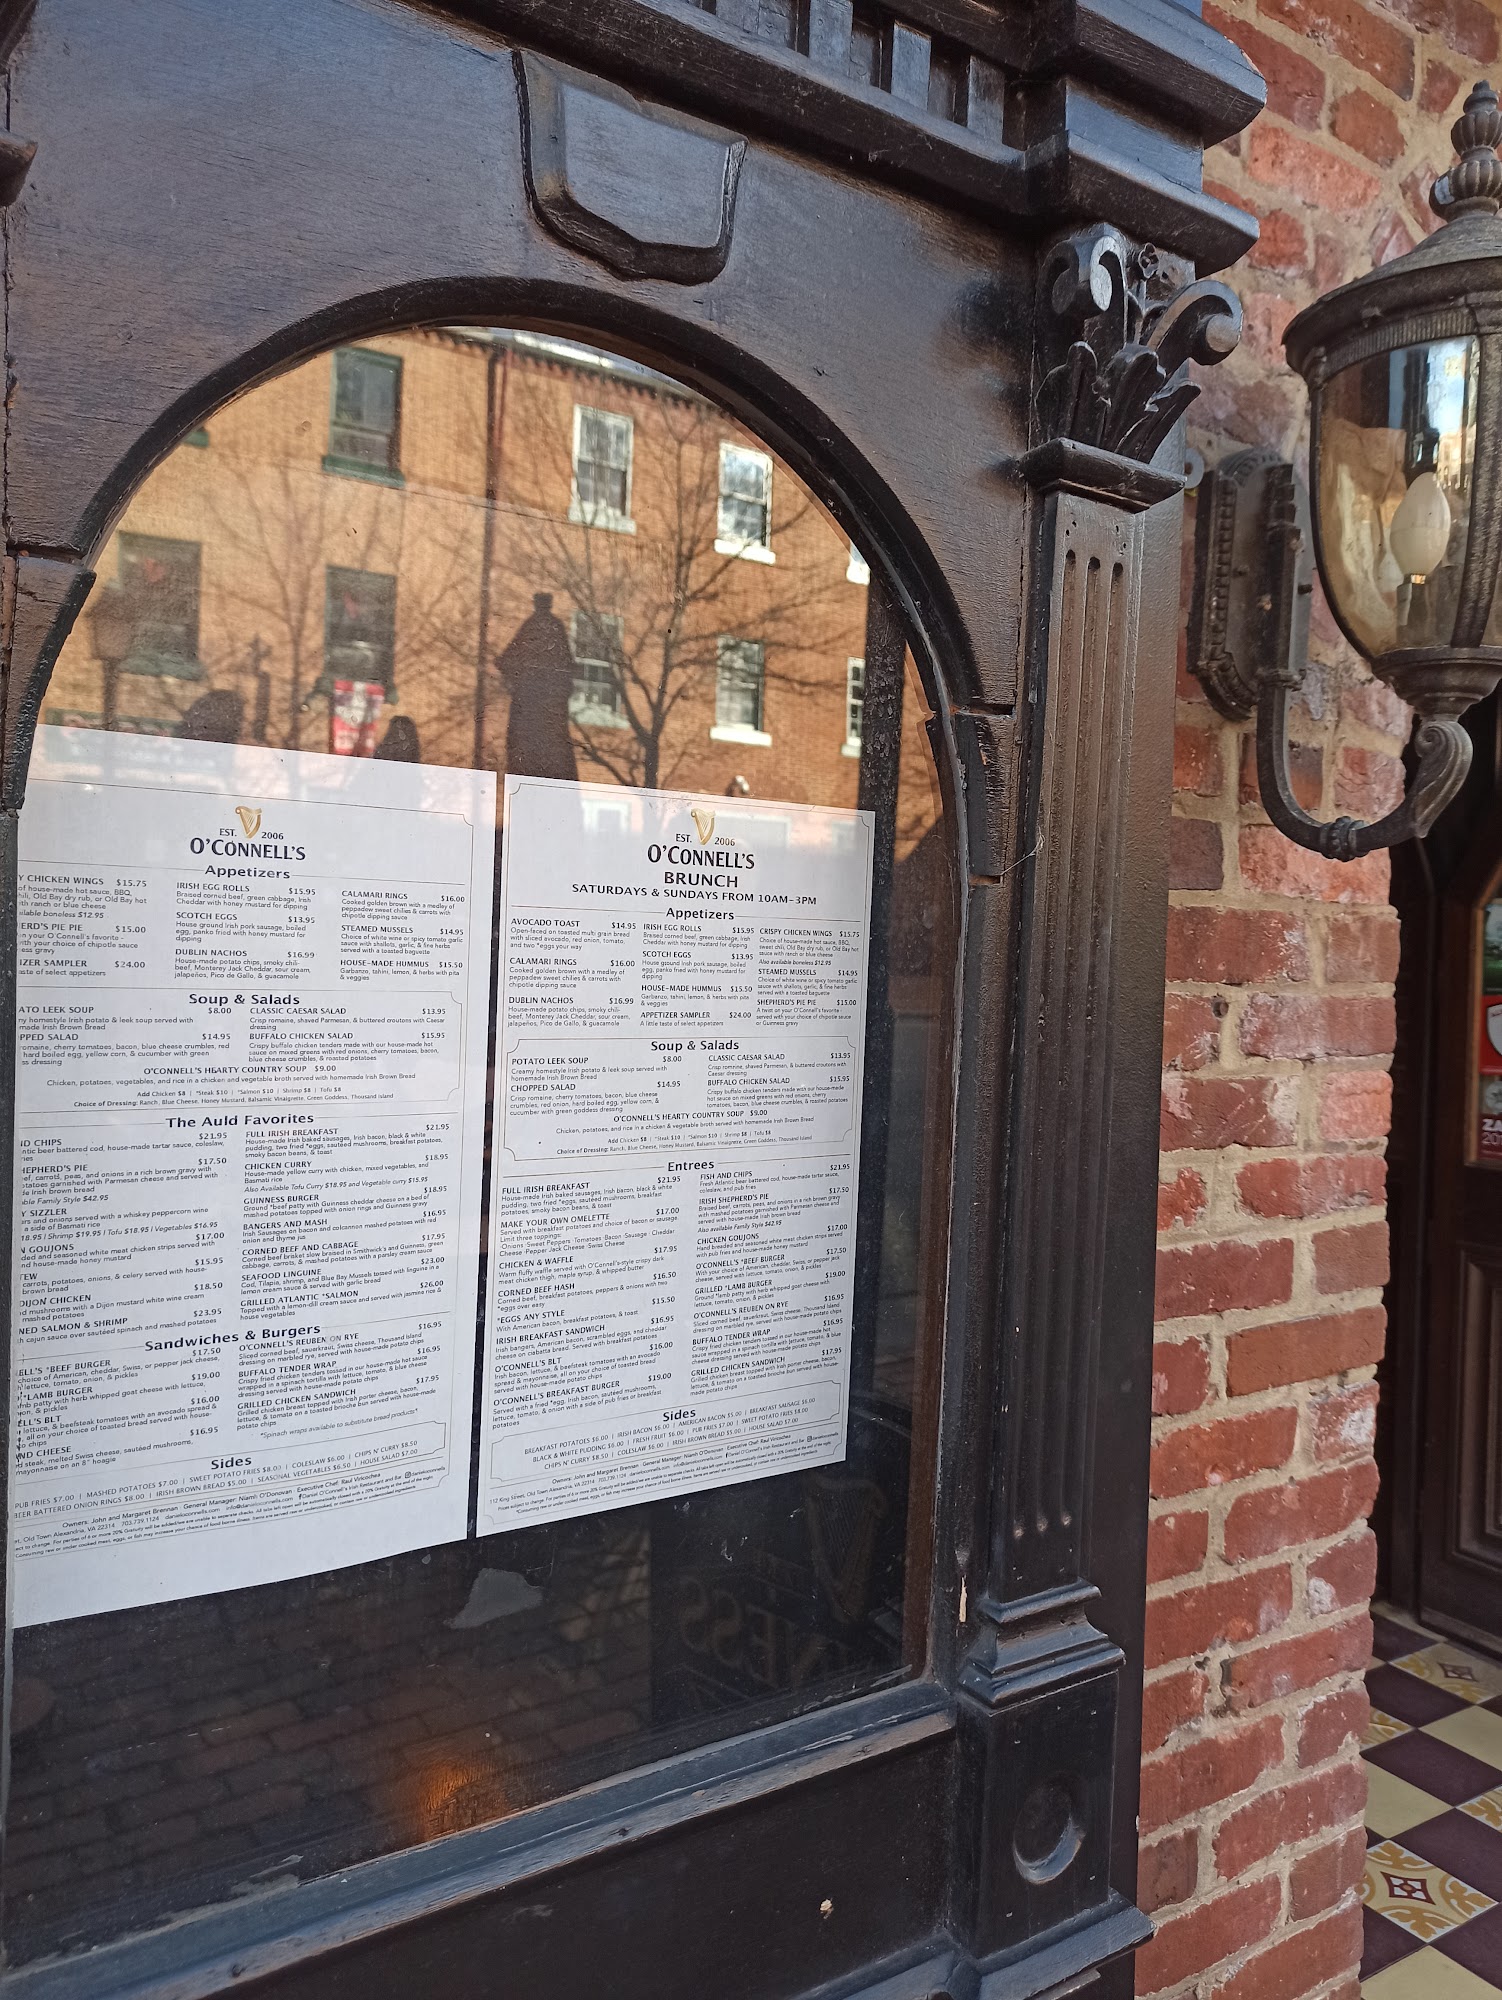 EST. 2006
O'CONNELL'S
Appetizers
Y CHICKEN WINGS $15.75
of house-made hot sauce, BBQ,
hili, Old Bay dry rub, or Old Bay hot
ith ranch or blue cheese
ilable boneless $12.95
ERD'S PIE PIE $15.00
n your O'Connell's favorite -
ith your choice of chipotle sauce
ess gravy
IZER SAMPLER $24.00
aste of select appetizers
IRISH EGG ROLLS $15.95
Braised corned beef, green cabbage, Irish
Cheddar with honey mustard for dipping
SCOTCH EGGS $13.95
House ground Irish pork sausage, boiled
egg, panko fried with honey mustard for
dipping
DUBLIN NACHOS $16.99
House-made potato chips, smoky chili-
beef, Monterey Jack Cheddar, sour cream,
jalapeños, Pico de Gallo, & guacamole
CALAMARI RINGS $16.00
Cooked golden brown with a medley of
peppadew sweet chilies & carrots with
chipotle dipping sauce
STEAMED MUSSELS $14.95
Choice of white wine or spicy tomato garlic
sauce with shallots, garlic, & fine herbs
served with a toasted baguette
HOUSE-MADE HUMMUS $15.50
Garbanzo, tahini, lemon, & herbs with pita
& veggies
Soup & Salads
ATO LEEK SOUP $8.00
my homestyle Irish potato & leek soup served with
made Irish Brown Bread
PPED SALAD $14.95
omaine, cherry tomatoes, bacon, blue cheese crumbles, red
hard boiled egg, yellow corn, & cucumber with green
ss dressing
CLASSIC CAESAR SALAD $13.95
Crisp romaine, shaved Parmesan, & buttered croutons with Caesar
dressing
BUFFALO CHICKEN SALAD $15.95
Crispy buffalo chicken tenders made with our house-made hot
sauce on mixed greens with red onions, cherry tomatoes, bacon,
blue cheese crumbles, & roasted potatoes
O'CONNELL'S HEARTY COUNTRY SOUP $9.00
Chicken, potatoes, vegetables, and rice in a chicken and vegetable broth served with homemade Irish Brown Bread
Add Chicken $8 | *Steak $10 | *Salmon $10 | Shrimp $8 | Tofu $8
Choice of Dressing: Ranch, Blue Cheese, Honey Mustard, Balsamic Vinaigrette, Green Goddess, Thousand Island
The Auld Favorites
ND CHIPS $21.95
ntic beer battered cod, house-made tartar sauce, coleslaw,
ries
HEPHERD'S PIE $17.50
ef, carrots, peas, and onions in a rich brown gravy with
otatoes garnished with Parmesan cheese and served with
de Irish brown bread
ble Family Style $42.95
Y SIZZLER
ers and onions served with a whiskey peppercorn wine
a side of Basmati rice
18.95 | Shrimp $19.95 | Tofu $18.95 | Vegetables $16.95
N GOUJONS $17.00
ded and seasoned white meat chicken strips served with
nd house-made honey mustard
TEW $15.95
carrots, potatoes, onions, & celery served with house-
brown bread
DIJON CHICKEN $18.50
d mushrooms with a Dijon mustard white wine cream
mashed potatoes
NED SALMON & SHRIMP $23.95
h cajun sauce over sautéed spinach and mashed potatoes
FULL IRISH BREAKFAST $21.95
House-made Irish baked sausages, Irish bacon, black & white
pudding, two fried *eggs, sautéed mushrooms, breakfast potatoes,
smoky bacon beans, & toast
CHICKEN CURRY $18.95
House-made yellow curry with chicken, mixed vegetables, and
Basmati rice
Also Available Tofu Curry $18.95 and Vegetable curry $15.95
GUINNESS BURGER $18.95
Ground *beef patty with Guinness cheddar cheese on a bed of
mashed potatoes topped with onion rings and Guinness gravy
BANGERS AND MASH $16.95
Irish Sausages on bacon and colcannon mashed potatoes with red
onion and thyme jus
CORNED BEEF AND CABBAGE $17.95
Corned beef brisket slow braised in Smithwick's and Guinness, green
cabbage, carrots, & mashed potatoes with a parsley cream sauce
SEAFOOD LINGUINE $23.00
Cod, Tilapia, shrimp, and Blue Bay Mussels tossed with linguine in a
lemon cream sauce & served with garlic bread
GRILLED ATLANTIC *SALMON $26.00
Topped with a lemon-dill cream sauce and served with jasmine rice &
house vegetables
Sandwiches & Burgers
ELL'S *BEEF BURGER $17.50
choice of American, cheddar, Swiss, or pepper jack cheese,
h lettuce, tomato, onion, & pickles
*LAMB BURGER $19.00
mb patty with herb whipped goat cheese with lettuce,
on, & pickles
ELL'S BLT $16.00
lettuce, & beefsteak tomatoes with an avocado spread &
, all on your choice of toasted bread served with house-
o chips
ND CHEESE $16.95
d steak, melted Swiss cheese, sautéed mushrooms,
mayonnaise on an 8" hoagie
O'CONNELL'S REUBEN ON RYE $16.95
Sliced corned beef, sauerkraut, Swiss cheese, Thousand Island
dressing on marbled rye, served with house-made potato chips
BUFFALO TENDER WRAP $16.95
Crispy fried chicken tenders tossed in our house-made hot sauce
wrapped in a spinach tortilla with lettuce, tomato, & blue cheese
dressing served with house-made potato chips
GRILLED CHICKEN SANDWICH $17.95
Grilled chicken breast topped with Irish porter cheese, bacon,
lettuce, & tomato on a toasted brioche bun served with house-made
potato chips
*Spinach wraps available to substitute bread products*
Sides
PUB FRIES $7.00 | MASHED POTATOES $7.00 | SWEET POTATO FRIES $8.00 | COLESLAW $6.00 | CHIPS N' CURRY $8.50
BEER BATTERED ONION RINGS $8.00 | IRISH BROWN BREAD $5.00 | SEASONAL VEGETABLES $6.50 | HOUSE SALAD $7.00
Owners: John and Margaret Brennan · General Manager: Niamh O'Donovan · Executive Chef: Raul Viricochea
et, Old Town Alexandria, VA 22314 703.739.1124 danieloconnells.com info@danieloconnells.com Daniel O'Connell's Irish Restaurant and Bar @danieloconnells
ect to change. For parties of 6 or more 20% Gratuity will be added/we are unable to separate checks. All tabs left open will be automatically closed with a 20% Gratuity at the end of the night.
Consuming raw or under cooked meat, eggs, or fish may increase your chance of food borne illness. Items are served raw or undercooked, or contain raw or undercooked ingredients.
EST. 2006
O'CONNELL'S
BRUNCH
SATURDAYS & SUNDAYS FROM 10AM-3PM
Appetizers
AVOCADO TOAST $14.95
Open-faced on toasted multi grain bread
with sliced avocado, red onion, tomato,
and two *eggs your way
CALAMARI RINGS $16.00
Cooked golden brown with a medley of
peppadew sweet chilies & carrots with
chipotle dipping sauce
DUBLIN NACHOS $16.99
House-made potato chips, smoky chili-
beef, Monterey Jack Cheddar, sour cream,
jalapeños, Pico de Gallo, & guacamole
IRISH EGG ROLLS $15.95
Braised corned beef, green cabbage, Irish
Cheddar with honey mustard for dipping
SCOTCH EGGS $13.95
House ground Irish pork sausage, boiled
egg, panko fried with honey mustard for
dipping
HOUSE-MADE HUMMUS $15.50
Garbanzo, tahini, lemon, & herbs with pita
& veggies
APPETIZER SAMPLER $24.00
A little taste of select appetizers
CRISPY CHICKEN WINGS $15.75
Choice of house-made hot sauce, BBQ,
sweet chili, Old Bay dry rub, or Old Bay hot
sauce with ranch or blue cheese
Also available boneless $12.95
STEAMED MUSSELS $14.95
Choice of white wine or spicy tomato garlic
sauce with shallots, garlic, & fine herbs
served with a toasted baguette
SHEPHERD'S PIE PIE $15.00
A twist on your O'Connell's favorite -
served with your choice of chipotle sauce
or Guinness gravy
Soup & Salads
POTATO LEEK SOUP $8.00
Creamy homestyle Irish potato & leek soup served with
homemade Irish Brown Bread
CHOPPED SALAD $14.95
Crisp romaine, cherry tomatoes, bacon, blue cheese
crumbles, red onion, hard boiled egg, yellow corn, &
cucumber with green goddess dressing
CLASSIC CAESAR SALAD $13.95
Crisp romaine, shaved Parmesan, & buttered croutons with
Caesar dressing
BUFFALO CHICKEN SALAD $15.95
Crispy buffalo chicken tenders made with our house-made
hot sauce on mixed greens with red onions, cherry
tomatoes, bacon, blue cheese crumbles, & roasted potatoes
O'CONNELL'S HEARTY COUNTRY SOUP $9.00
Chicken, potatoes, vegetables, and rice in a chicken and vegetable broth served with homemade Irish Brown Bread
Add Chicken $8 | *Steak $10 | *Salmon $10 | Shrimp $8 | Tofu $8
Choice of Dressing: Ranch, Blue Cheese, Honey Mustard, Balsamic Vinaigrette, Green Goddess, Thousand Island
Entrees
FULL IRISH BREAKFAST $21.95
House-made Irish baked sausages, Irish bacon, black & white
pudding, two fried *eggs, sautéed mushrooms, breakfast
potatoes, smoky bacon beans, & toast
MAKE YOUR OWN OMELETTE $17.00
Served with breakfast potatoes and choice of bacon or sausage
Limit three toppings:
·Onions ·Sweet Peppers ·Tomatoes ·Bacon ·Sausage ·Cheddar
Cheese ·Pepper Jack Cheese ·Swiss Cheese
CHICKEN & WAFFLE $17.95
Warm fluffy waffle served with O'Connell's-style crispy dark
meat chicken thigh, maple syrup, & whipped butter
CORNED BEEF HASH $16.50
Corned beef, breakfast potatoes, peppers & onions with two
*eggs over easy
*EGGS ANY STYLE $15.50
With American bacon, breakfast potatoes, & toast
IRISH BREAKFAST SANDWICH $16.95
Irish bangers, American bacon, scrambled eggs, and cheddar
cheese on ciabatta bread. Served with breakfast potatoes
O'CONNELL'S BLT $16.00
Irish bacon, lettuce, & beefsteak tomatoes with an avocado
spread & mayonnaise, all on your choice of toasted bread
served with house-made potato chips
O'CONNELL'S BREAKFAST BURGER $19.00
Served with a fried *egg, Irish bacon, sautéed mushrooms,
lettuce, tomato, & onion with a side of pub fries or breakfast
potatoes
FISH AND CHIPS $21.95
Fresh Atlantic beer battered cod, house-made tartar sauce,
coleslaw, and pub fries
IRISH SHEPHERD'S PIE $17.50
Braised beef, carrots, peas, and onions in a rich brown gravy
with mashed potatoes garnished with Parmesan cheese and
served with house-made Irish brown bread
Also available Family Style $42.95
CHICKEN GOUJONS $17.00
Hand breaded and seasoned white meat chicken strips served
with pub fries and house-made honey mustard
O'CONNELL'S *BEEF BURGER $17.50
With your choice of American, cheddar, Swiss, or pepper jack
cheese, served with lettuce, tomato, onion, & pickles
GRILLED *LAMB BURGER $19.00
Ground *lamb patty with herb whipped goat cheese with
lettuce, tomato, onion, & pickles
O'CONNELL'S REUBEN ON RYE $16.95
Sliced corned beef, sauerkraut, Swiss cheese, Thousand Island
dressing on marbled rye, served with house-made potato chips
BUFFALO TENDER WRAP $16.95
Crispy fried chicken tenders tossed in our house-made hot
sauce wrapped in a spinach tortilla with lettuce, tomato, & blue
cheese dressing served with house-made potato chips
GRILLED CHICKEN SANDWICH $17.95
Grilled chicken breast topped with Irish porter cheese, bacon,
lettuce, & tomato on a toasted brioche bun served with house-
made potato chips
Sides
BREAKFAST POTATOES $6.00 | IRISH BACON $6.00 | AMERICAN BACON $5.00 | BREAKFAST SAUSAGE $6.00
BLACK & WHITE PUDDING $6.00 | FRESH FRUIT $6.00 | PUB FRIES $7.00 | SWEET POTATO FRIES $8.00
CHIPS N' CURRY $8.50 | COLESLAW $6.00 | IRISH BROWN BREAD $5.00 | HOUSE SALAD $7.00
Owners: John and Margaret Brennan · General Manager: Niamh O'Donovan · Executive Chef: Raul Viricochea
112 King Street, Old Town Alexandria, VA 22314 703.739.1124 danieloconnells.com info@danieloconnells.com Daniel O'Connell's Irish Restaurant and Bar @danieloconnells
Prices subject to change. For parties of 6 or more 20% Gratuity will be added/we are unable to separate checks. All tabs left open will be automatically closed with a 20% Gratuity at the end of the night.
*Consuming raw or under cooked meat, eggs, or fish may increase your chance of food borne illness. Items are served raw or undercooked, or contain raw or undercooked ingredients.
NESS
ZA
20